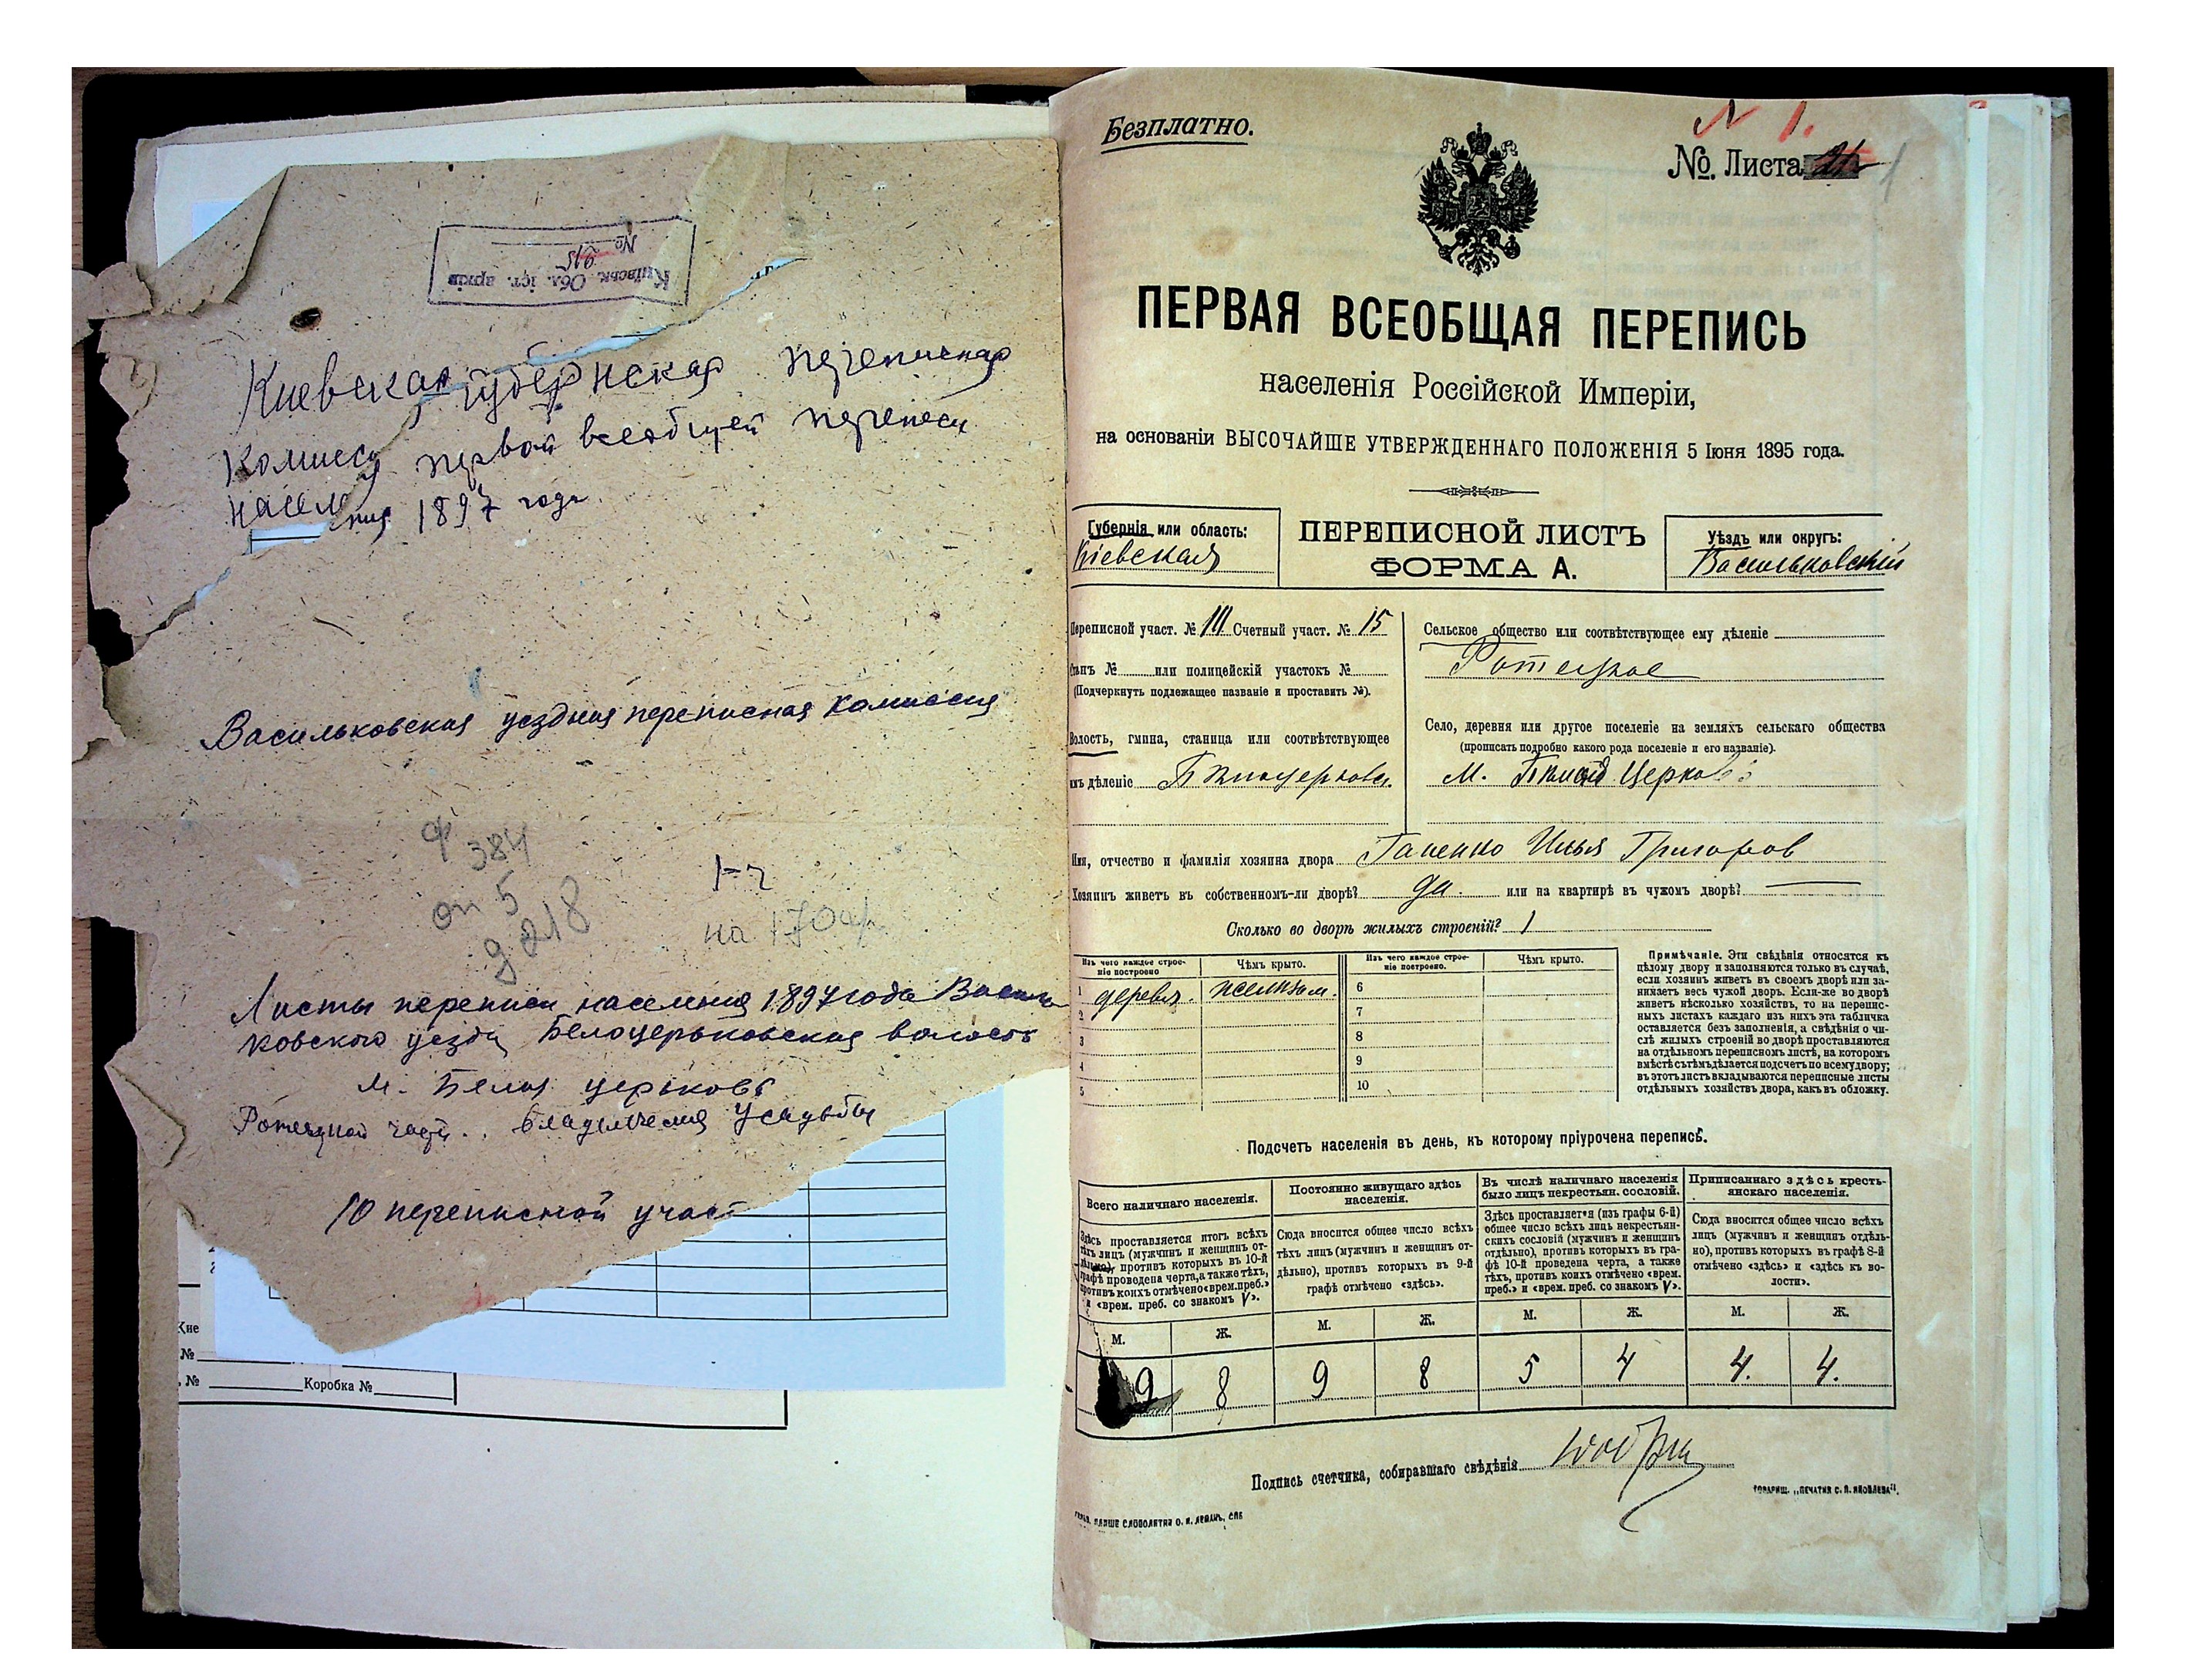 Київськ. Обл. іст. архів
№ 215
Киевская губернская переписная
комисс первой всеобщей переписи
насел ния 1897 года
Васильковская уездная переписная комиссия
ф 384
оп 5
д 218
на 170 ар
Листы переписи населения 1897 года Василь
ковского уезда Белоцерковская волость
м. Белая церковь
Ротецкой части. владельческая усадьба
10 переписной учас
Кие
№
. №
Коробка №
Безплатно.
N 1.
№. Листа
1
ПЕРВАЯ ВСЕОБЩАЯ ПЕРЕПИСЬ
населенія Россійской Имперіи,
на основаніи ВЫСОЧАЙШЕ УТВЕРЖДЕННАГО ПОЛОЖЕНІЯ 5 Іюня 1895 года.
Губернія или область:
Кіевская
ПЕРЕПИСНОЙ ЛИСТЪ
ФОРМА А.
Уѣздъ или округъ:
Васильковскій
Переписной участ. № III Счетный участ. № 15
Станъ № или полицейскій участокъ №
(Подчеркнуть подлежащее названіе и проставить №).
Волость, гмина, станица или соотвѣтствующее
имъ дѣленіе Бѣлоцерковск.
Сельское общество или соотвѣтствующее ему дѣленіе
Ротецкое
Село, деревня или другое поселеніе на земляхъ сельскаго общества
(прописать подробно какого рода поселеніе и его названіе).
М. Бѣлая Церковь
Имя, отчество и фамилія хозяина двора Гапенко Илья Григоров
Хозяинъ живетъ въ собственномъ-ли дворѣ? да. или на квартирѣ въ чужомъ дворѣ?
Сколько во дворѣ жилыхъ строеній? 1
Изъ чего каждое строе-
ніе построено
Чѣмъ крыто.
Изъ чего каждое строе-
ніе построено.
Чѣмъ крыто.
1 дерева. желѣзом. 6
2 7
3 8
4 9
5 10
Примѣчаніе. Эти свѣдѣнія относятся къ
цѣлому двору и заполняются только въ случаѣ,
если хозяинъ живетъ въ своемъ дворѣ или за-
нимаетъ весь чужой дворъ. Если-же во дворѣ
живетъ нѣсколько хозяйствъ, то на перепис-
ныхъ листахъ каждаго изъ нихъ эта табличка
оставляется безъ заполненія, а свѣдѣнія о чи-
слѣ жилыхъ строеній во дворѣ проставляются
на отдѣльномъ переписномъ листѣ, на которомъ
вмѣстѣ съ тѣмъ дѣлается подсчетъ по всему двору;
въ этотъ листъ вкладываются переписные листы
отдѣльныхъ хозяйствъ двора, какъ въ обложку.
Подсчетъ населенія въ день, къ которому пріурочена перепись.
Всего наличнаго населенія.
Здѣсь проставляется итогъ всѣхъ
тѣхъ лицъ (мужчинъ и женщинъ от-
дѣльно), противъ которыхъ въ 10-й
графѣ проведена черта, а также тѣхъ,
противъ коихъ отмѣчено «врем. преб.»
и «врем. преб. со знакомъ V».
Постоянно живущаго здѣсь
населенія.
Сюда вносится общее число всѣхъ
тѣхъ лицъ (мужчинъ и женщинъ от-
дѣльно), противъ которыхъ въ 9-й
графѣ отмѣчено «здѣсь».
Въ числѣ наличнаго населенія
было лицъ некрестьян. сословій.
Здѣсь проставляется (изъ графы 6-й)
общее число всѣхъ лицъ некрестьян-
скихъ сословій (мужчинъ и женщинъ
отдѣльно), противъ которыхъ въ гра-
фѣ 10-й проведена черта, а также
тѣхъ, противъ коихъ отмѣчено «врем.
преб.» и «врем. преб. со знакомъ V».
Приписаннаго здѣсь кресть-
янскаго населенія.
Сюда вносится общее число всѣхъ
лицъ (мужчинъ и женщинъ отдѣль-
но), противъ которыхъ въ графѣ 8-й
отмѣчено «здѣсь» и «здѣсь къ во-
лости».
М. Ж. М. Ж. М. Ж. М. Ж.
9 8 9 8 5 4 4. 4.
Подпись счетчика, собиравшаго свѣдѣнія
ТОВАРИЩ. „ПЕЧАТНЯ С. П. ЯКОВЛЕВА".
СЛОВОЛИТНЯ О. И. ЛЕМАНЪ, СПБ